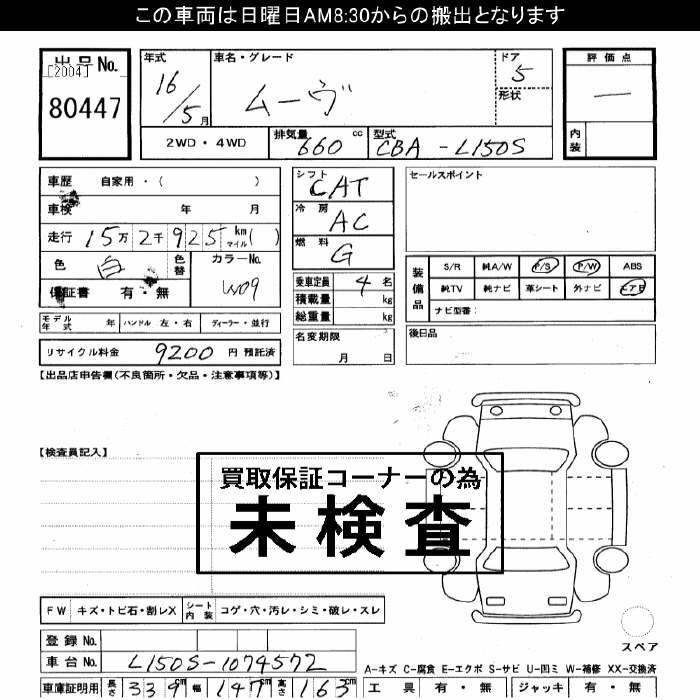 この車両は日曜日AM8:30からの搬出となります
出品No.
[2004]
80447
年式
16/5月
車名・グレード
ムーヴ
ドア
5
形状
評価点
ー
内装
2WD・4WD
排気量
660 cc
型式
CBA-L150S
車歴 自家用・( )
車検 年 月
走行 15万2千925 km マイル( )
色 白 色替
カラーNo.
W09
保証書 有・無
シフト
CAT
冷房
AC
燃料
G
セールスポイント
装備品
S/R 純A/W P/S P/W ABS
純TV 純ナビ 革シート 外ナビ エアB
ナビ型番:
乗車定員 4 名
積載量 kg
総重量 kg
モデル年式 年 ハンドル 左・右 ディーラー・並行
名変期限
月 日
後日品
リサイクル料金 9200 円 預託済
【出品店申告欄(不良箇所・欠品・注意事項等)】
【検査員記入】
買取保証コーナーの為
未検査
FW キズ・トビ石・割レX シート内装 コゲ・穴・汚レ・シミ・破レ・スレ
登録No.
車台No. L150S-1074572
スペア
A-キズ C-腐食 E-エクボ S-サビ U-凹ミ W-補修 XX-交換済
車庫証明用 長さ 339cm 幅 147cm 高さ 163cm
工具 有・無 ジャッキ 有・無